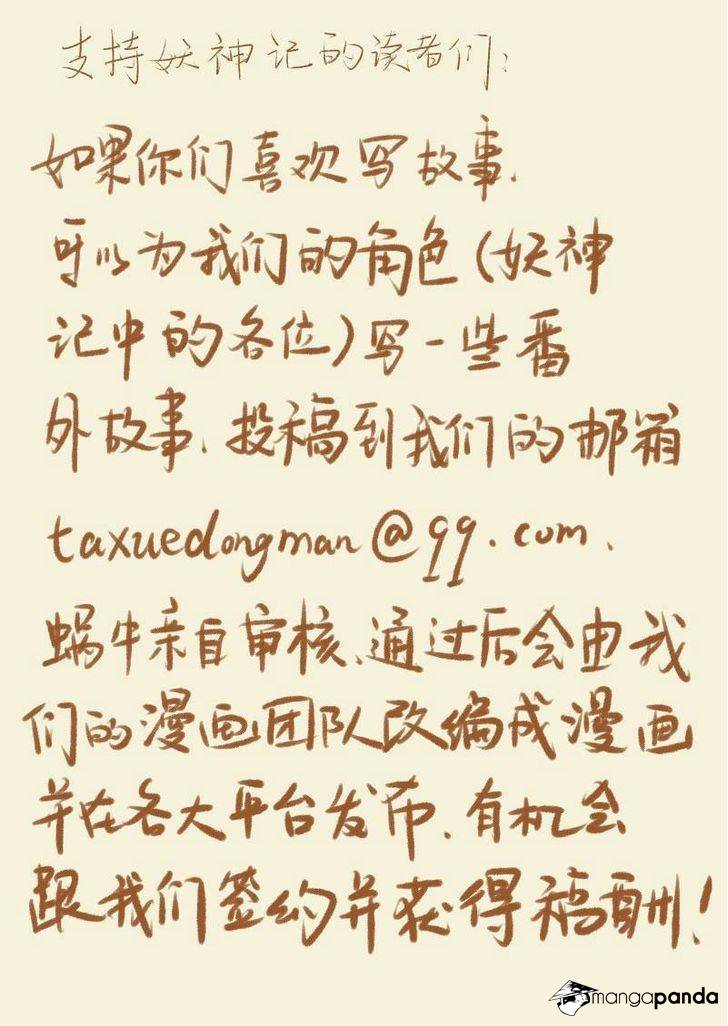 支持妖神记的读者们:
如果你们喜欢写故事,
可以为我们的角色(妖神
记中的各位)写一些番
外故事,投稿到我们的邮箱
taxuedongman@qq.com,
蜗牛亲自审核,通过后会由我
们的漫画团队改编成漫画
并在各大平台发布,有机会
跟我们签约并获得稿酬!
mangapanda